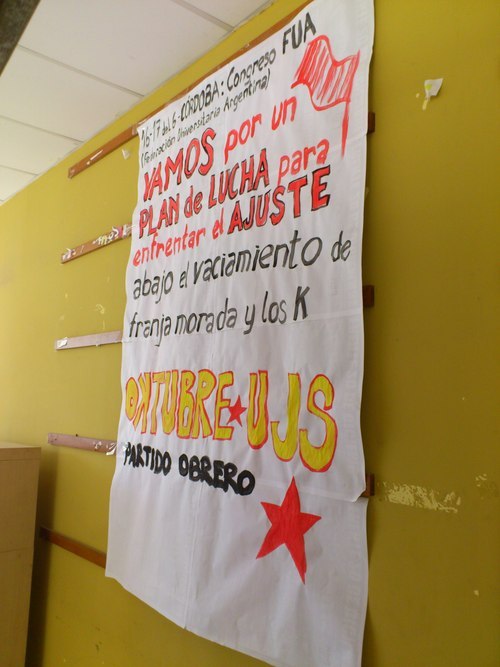 16-17 del 6-CÓRDOBA: Congreso FUA
(Federación Universitaria Argentina)
VAMOS por un
PLAN de LUCHA para
enfrentar el AJUSTE
abajo el vaciamiento de
franja morada y los K
OKTUBRE★UJS
PARTIDO OBRERO